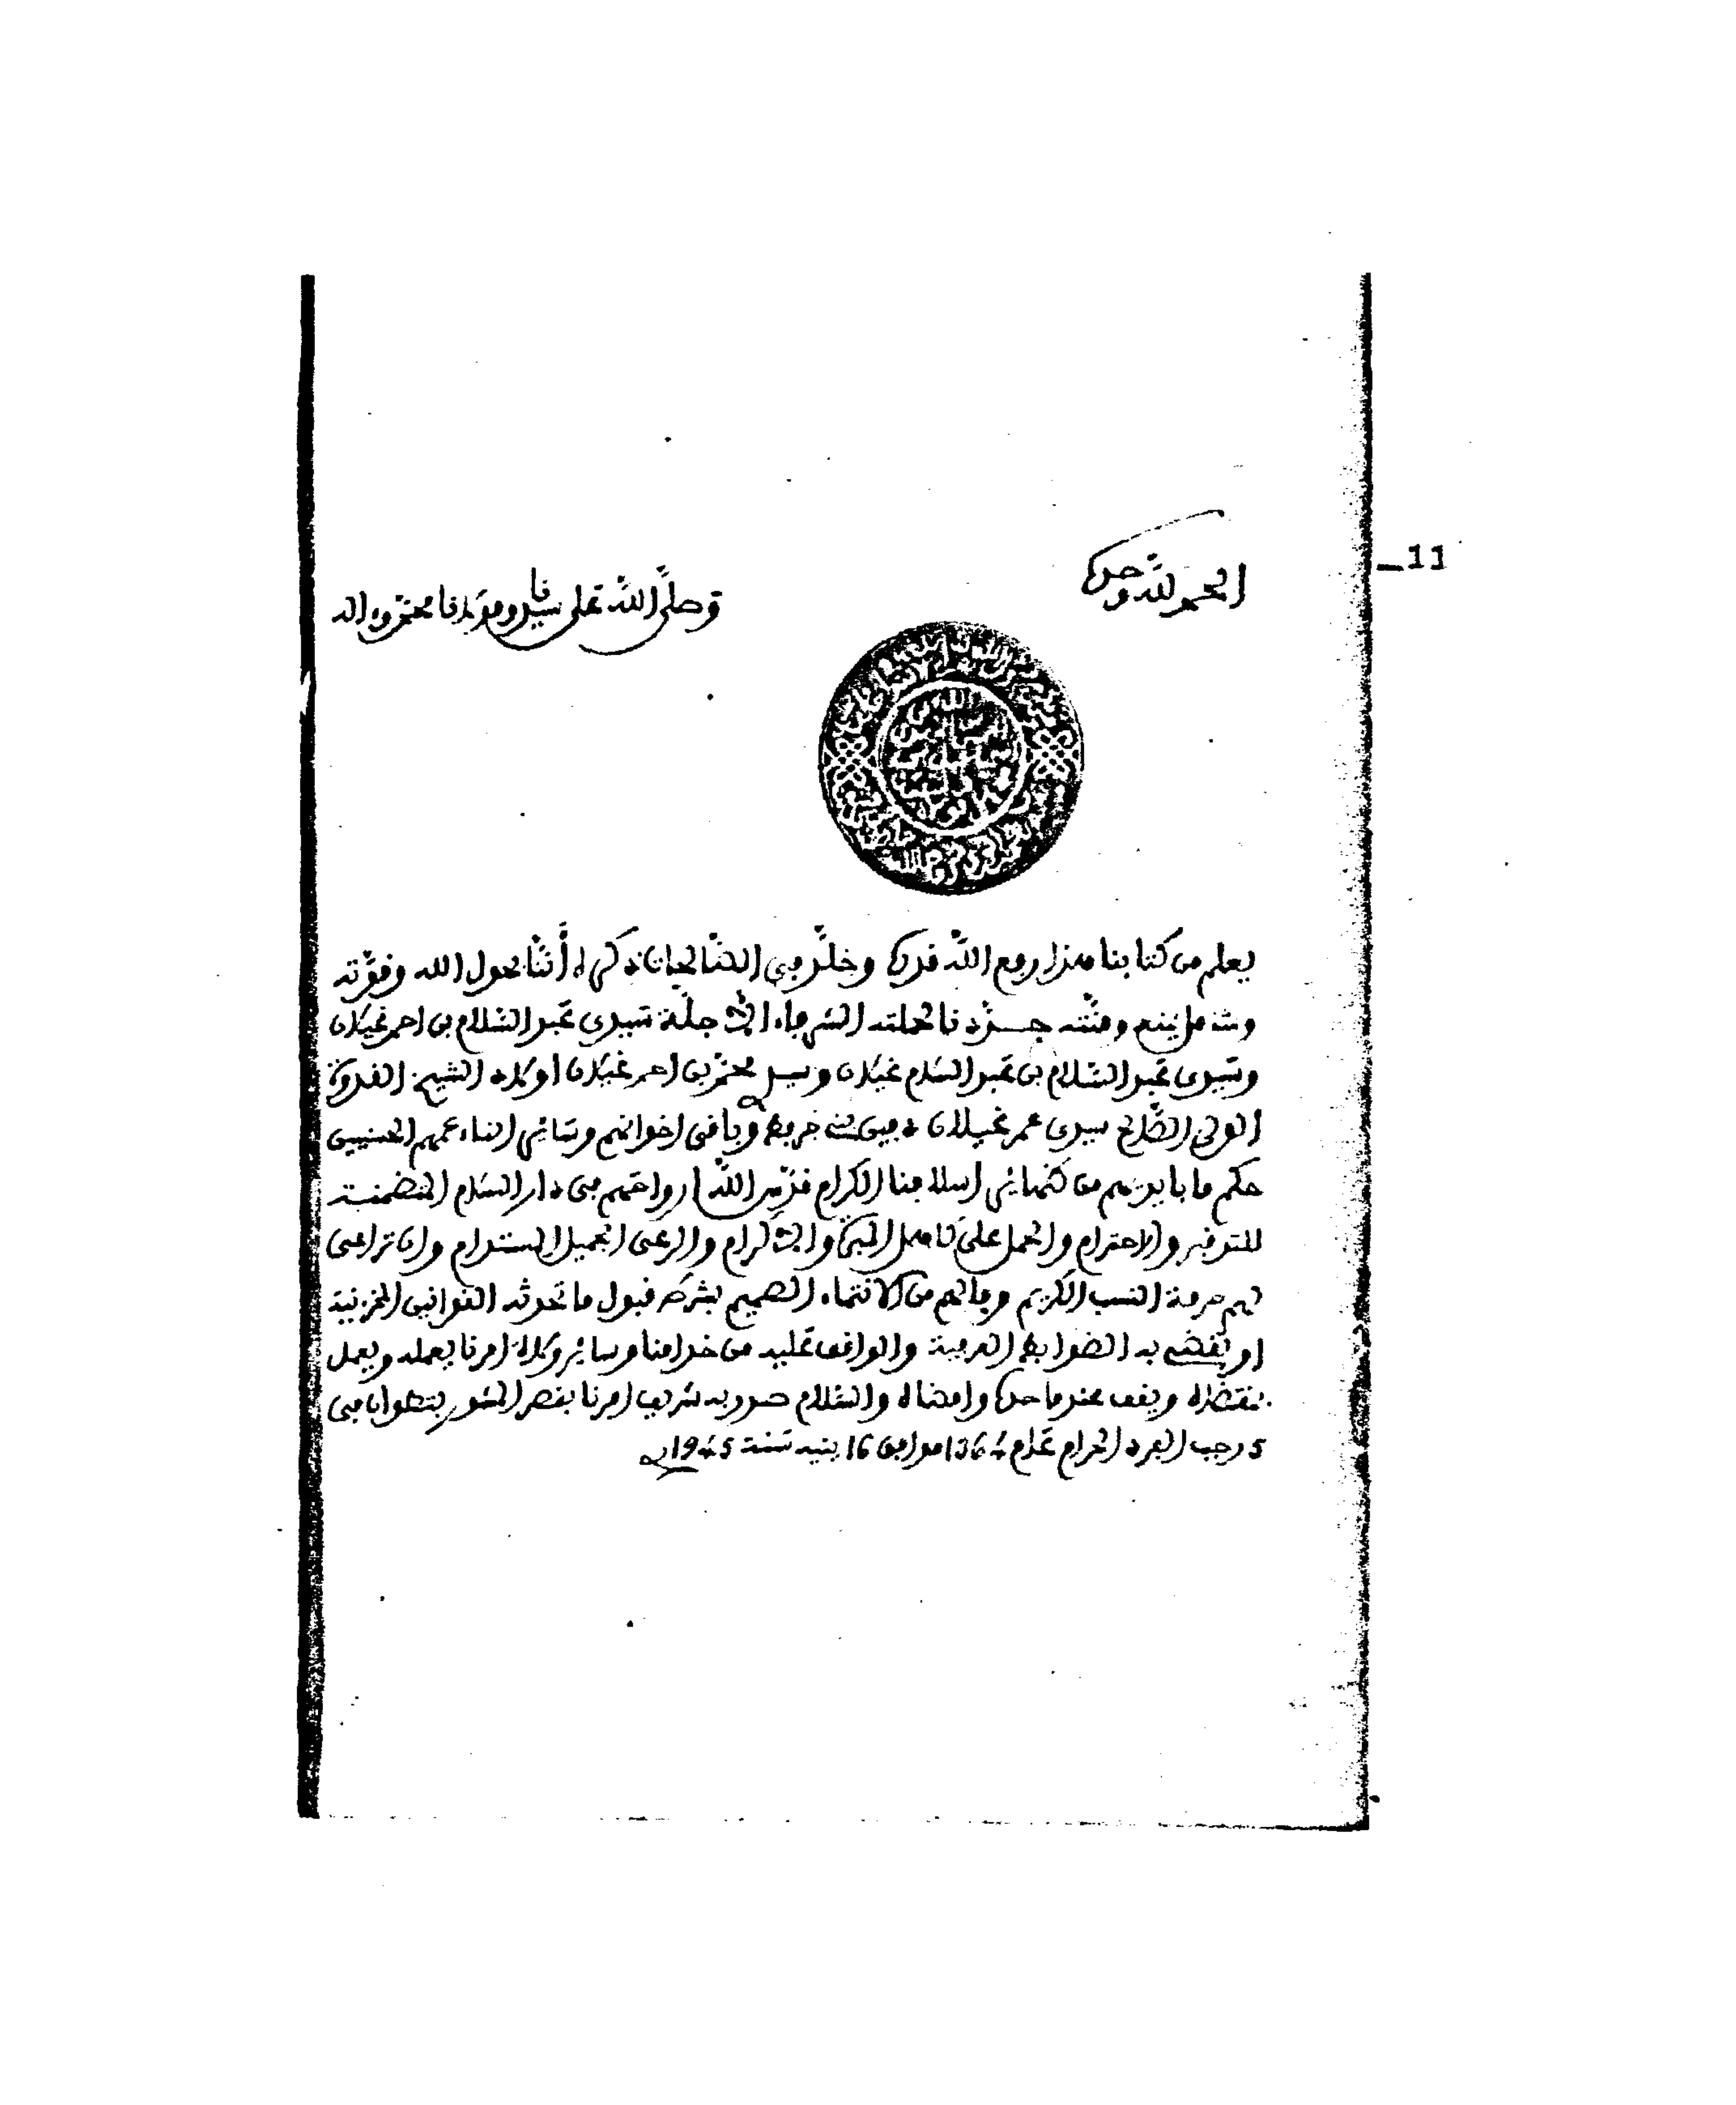 11ـ
الحمد لله وحده
وصلى الله على سيدنا ومولانا محمد وءاله
يعلم من كتابنا هذا رفع الله قدره وخلد في الصالحات ذكره أننا بحول الله وقوته
وشامل يمنه ومنته جددنا لحملته الشرفاء الأجلة سيدي عبد السلام بن احمد غيلان
وسيدي عبد السلام بن عبد السلام غيلان وسيدي محمد بن احمد غيلان اولاد الشيخ القدوة
الولي الصالح سيدي عمر غيلان دفين وباقي اخوانهم وسائر ابناء عمهم الحسنيين
حكم ما بأيديهم من ظهائر اسلافنا الكرام قدس الله ارواحهم في دار السلام المتضمنة
للتوقير والاحترام والحمل على كاهل المبرة والإكرام والرعي الجميل المستدام وان تراعى
لهم حرمة النسب الكريم وما لهم من الانتماء الصميم بشرط قبول ما تحدثه القوانين المخزنية
او تقضي به الضوابط العرفية والواقف عليه من خدامنا وسائر ولاة امرنا يعلمه ويعمل
بمقتضاه ويقف عند ما حده وامضاه والسلام صدر به شريف امرنا بقصر المشور بتطوان في
5 رجب الفرد الحرام عام 1364 موافق 16 ينيه سنة 1945